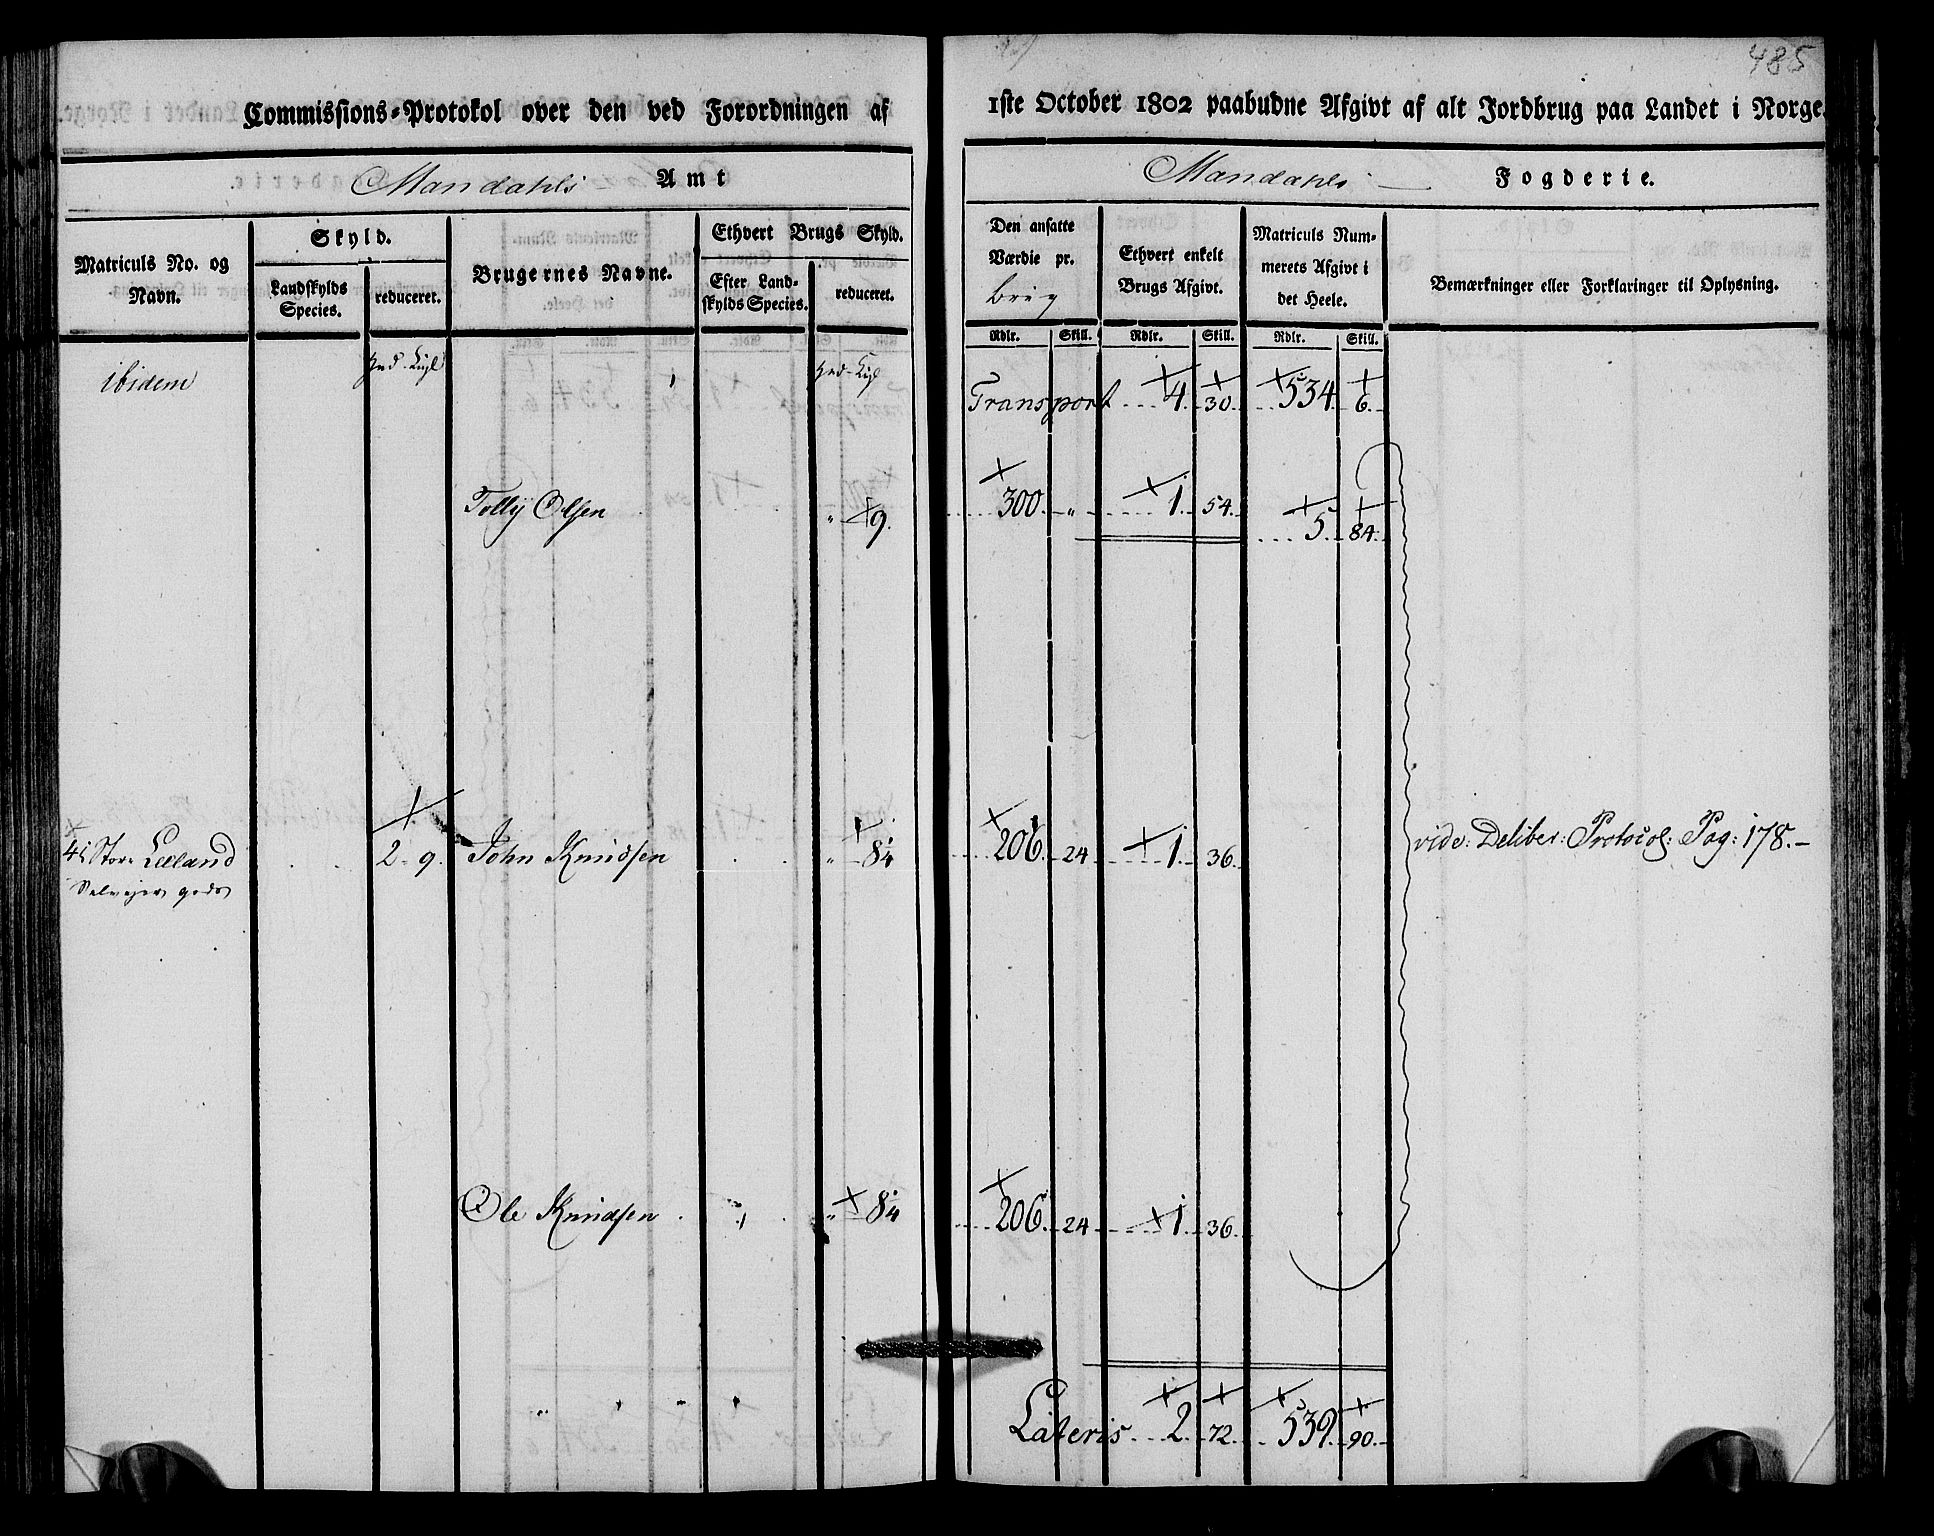 485
Commissions-Protokol over den ved Forordningen af 1ste October 1802 paabudne Afgivt af alt Jordbrug paa Landet i Norge.
Mandahls Amt
Mandahls Fogderie.
Matriculs No. og Navn.
Skyld.
Landskylds Species.
reduceret.
Brugernes Navne.
Ethvert Brugs Skyld.
Efter Landskylds Species.
reduceret.
Den ansatte Værdie pr. brug
Rdlr. Skill.
Ethvert enkelt Brugs Afgivt.
Rdlr. Skill.
Matriculs Nummerets Afgivt i det Heele.
Rdlr. Skill.
Bemærkninger eller Forklaringer til Oplysning.
ibidem
Transport 4. 30. 534. 6.
Tolly Olsen " 9. 300. " 1. 54. 5. 84.
Store Lelland 2 - 9. John Knudsen " 8¼ 206. 24 1. 36. vide: Deliber: Protocol: Pag: 178.-
Selvejer gods
Ole Knudsen " 8¼ 206. 24 1. 36.
Lateris 2. 72. 539. 90.